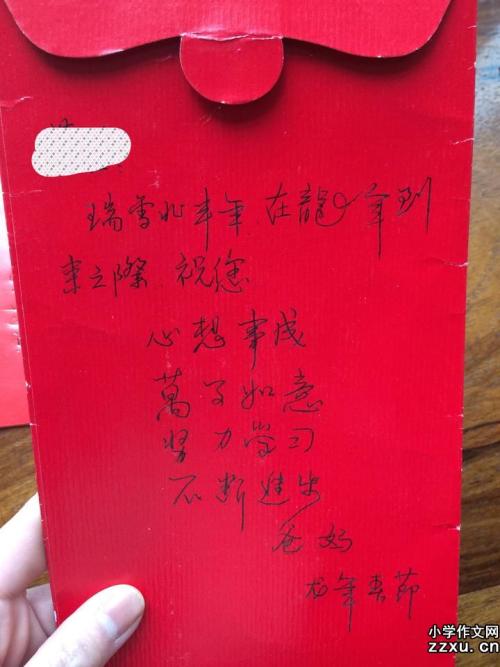 瑞雪兆丰年，在龍年到
来之際，祝您
心想事成
萬事如意
努力学习
不断進步
爸妈
龙年春节
小学作文网
zzxu.cn